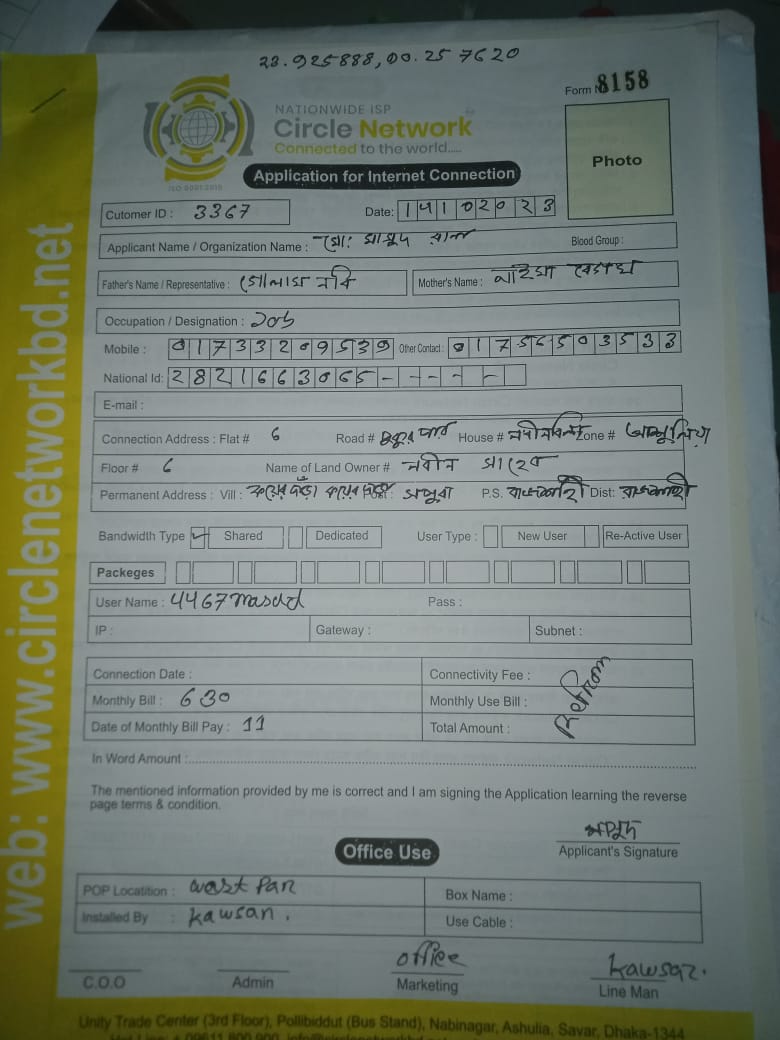 23.925888,00.257620
Form № 8158
NATIONWIDE ISP
Circle Network
Connected to the world.....
ISO 9001:2015
Photo
Application for Internet Connection
Cutomer ID : 3367 Date: 14102023
Applicant Name / Organization Name : মো: মাসুদ রানা Blood Group :
Father's Name / Representative : গোলাম নবি Mother's Name :
Occupation / Designation : Job
Mobile : 01733209539 Other Contact : 01756503533
National Id: 2821663065-----
E-mail :
Connection Address : Flat # 6 Road # পুকুর পার House # Zone # আশুলিয়া
Floor # 6 Name of Land Owner # নবীন সাহেব
Permanent Address : Vill : P.S. রাজশাহী Dist: রাজশাহী
Bandwidth Type ✓ Shared Dedicated User Type : New User Re-Active User
Packeges
User Name : 4467masud Pass :
IP : Gateway : Subnet :
Connection Date : Connectivity Fee :
Monthly Bill : 630 Monthly Use Bill :
Date of Monthly Bill Pay : 11 Total Amount :
In Word Amount :
The mentioned information provided by me is correct and I am signing the Application learning the reverse
page terms & condition.
মাসুদ
Applicant's Signature
Office Use
POP Locatition : west Par Box Name :
Installed By : Kawsar. Use Cable :
office Kawsar.
C.O.O Admin Marketing Line Man
Unity Trade Center (3rd Floor), Pollibiddut (Bus Stand), Nabinagar, Ashulia, Savar, Dhaka-1344
web: www.circlenetworkbd.net